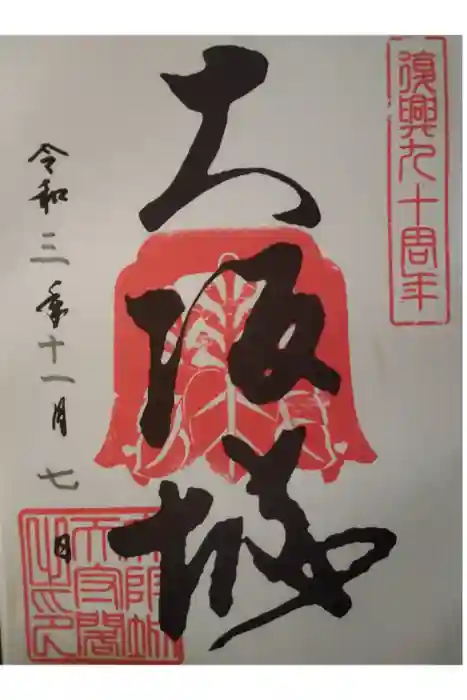 復興九十周年
大阪城
令和三年十一月七日
大阪城
天守閣
之印